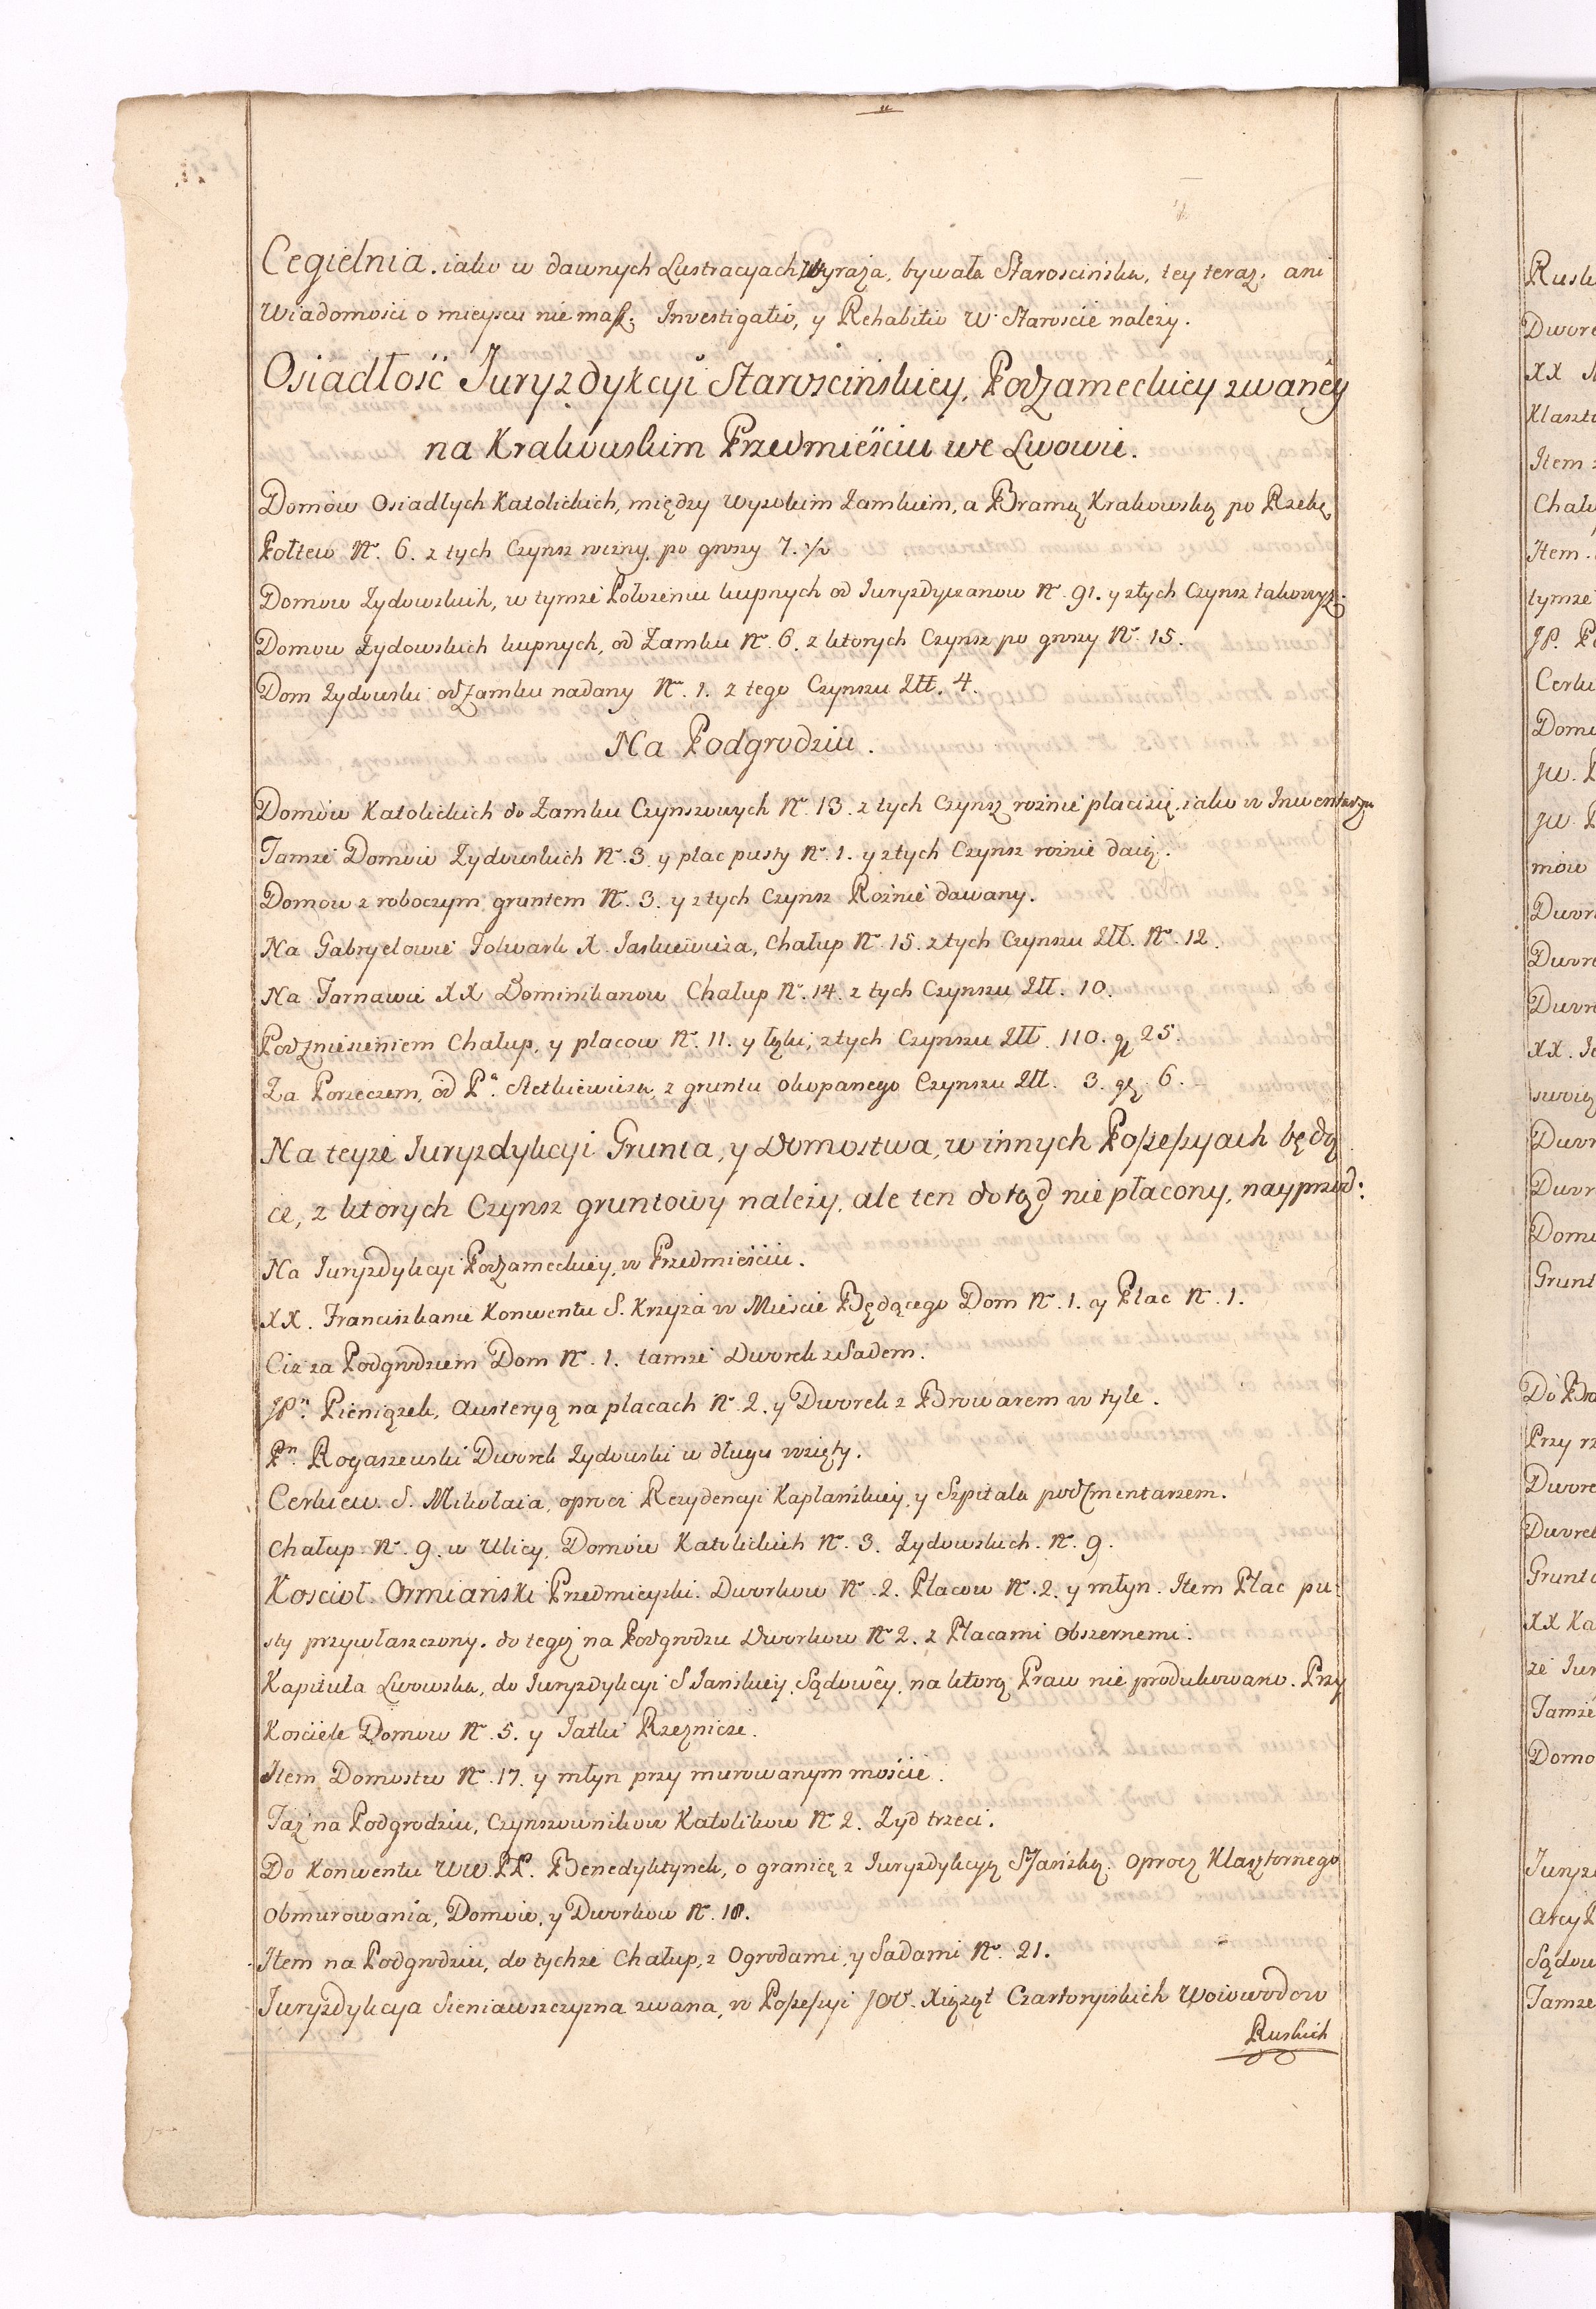 Cegielnia. iako w dawnych Lustracyach Wyraża, bywała Starościńska, tey teraz, ani
Wiadomości o mieyscu nie masz; Investigatio, y Rehabitio W. Staroście należy.
Osiadłość Juryzdykcyi Starościńskiey, Podzameckiey zwaney
na Krakowskim Przedmieściu we Lwowie.
Domów Osiadłych Katolickich, między Wysokim Zamkiem, a Bramą Krakowską po Rzekę
Połtew Nr. 6. z tych Czynsz roczny, po groszy 7. ½
Domow Zydowskich, w tymże Położeniu kupnych od Juryzdyczanow Nr. 91. y z tych Czynsz takowyż.
Domow Zydowskich kupnych, od Zamku Nr. 6. z ktorych Czynsz po groszy Nr. 15.
Dom Zydowski od Zamku nadany Nr. 1. z tego Czynszu Złł. 4.
Na Podgrodziu.
Domów Katolickich do Zamku Czynszowych Nr. 13. z tych Czynsz rożnie płacisię, iako w Inwentarzu
Tamże Domow Zydowskich Nr. 3. y plac pusty Nr. 1. y z tych Czynsz rożnie daią.
Domow z roboczym gruntem Nr. 3. y z tych Czynsz Rożnie dawany.
Na Gabryelowie Folwark X. Jaskiewicza, Chałup Nr. 15. z tych Czynszu Złł. Nr. 12.
Na Tarnawce XX Dominikanow Chałup Nr. 14. z tych Czynszu Złł. 10.
Pod Zniesieniem Chałup, y placow Nr. 11. y łąki, z tych Czynszu Złł. 110. gr 25.
Za Porzeczem, od Pa. Stetkiewicza, z gruntu okopanego Czynszu Złł. 3. gr. 6.
Na teyże Juryzdykcyi Grunta, y Domostwa, w innych Possessyach będą
ce, z ktorych Czynsz gruntowy należy, ale ten dotąd nie płacony, nayprzod:
Na Juryzdykcyi Podzameckiey, w Przedmieściu.
XX. Franciszkanie Konwentu S. Krzyża w Mieście Będącego Dom Nr. 1. y Plac Nr. 1.
Ciż za Podgrodziem Dom Nr. 1. tamże Dworek z Sadem.
JPn. Pieniążek, Austeryą na placach Nr. 2. y Dworek z Browarem w tyle.
Pn. Rogaszewski Dworek Zydowski w długu wzięty.
Cerkiew S. Mikołaia, oprocz Rezydencyi Kapłańskiey, y Szpitala pod Zmentarzem.
Chałup Nr. 9. w Ulicy, Domow Katolickich Nr. 3. Zydowskich Nr. 9.
Kościoł Ormiański Przedmieyski. Dworkow Nr. 2. Placow Nr. 2. y młyn. Item Plac pu-
sty przywłaszczony. do tegoż na Podgrodzu Dworkow Nr 2. z Placami Obszernemi.
Kapituła Lwowska, do Juryzdykcyi S Jańskiey, Sądowey, na ktorą Praw nie produkowano. Przy
Kościele Domow Nr. 5. y Jatki Rzeznicze.
Item Domostw Nr. 17. y młyn przy murowanym moście.
Taż na Podgrodziu, Czynszownikow Katolikow Nr 2. Zyd trzeci.
Do Konwentu WW. PP. Benedyktynek, o granicę z Juryzdykcyą S Jańską. oprocz Klasztornego
Obmurowania, Domow, y Dworkow Nr. 18.
Item na Podgrodziu, do tychże Chałup, z Ogrodami, y Sadami Nr. 21.
Juryzdykcya Sieniawszczyzna zwana, w Possessyi JOO. Xiążąt Czartoryiskich Woiewodow
Ruskich